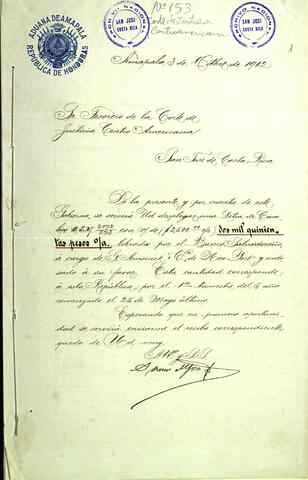 ADUANA DE AMAPALA
REPUBLICA DE HONDURAS
ARCHIVO NACIONAL
SAN JOSÉ
COSTA RICA
Nº 153
Corte de Justicia
Centroamericana
ARCHIVO NACIONAL
SAN JOSE
COSTA RICA
1
Amapala, 3 de 1912
Sr Tesorero de la Corte de
Justicia Centro Americana
San José de Costa Rica
De la presente, y por cuenta de este
Gobierno, se servirá Ud desplegar una Letra de Cam-
bio con v/. de ($2,500.00 o/a) dos mil quinien-
tos pesos o/a, librada por el Banco Salvadoreño,
á cargo de G. Amsinck & Cº. de New York y endo-
sada á su favor. Esta cantidad corresponde
á esta República, por el 1er trimestre del 5 año
comenzado el 25 de Mayo último.
Esperando que en primera oportuni-
dad se servirá enviarme el recibo correspondiente,
quedo de Ud. muy
Atto y S.S.